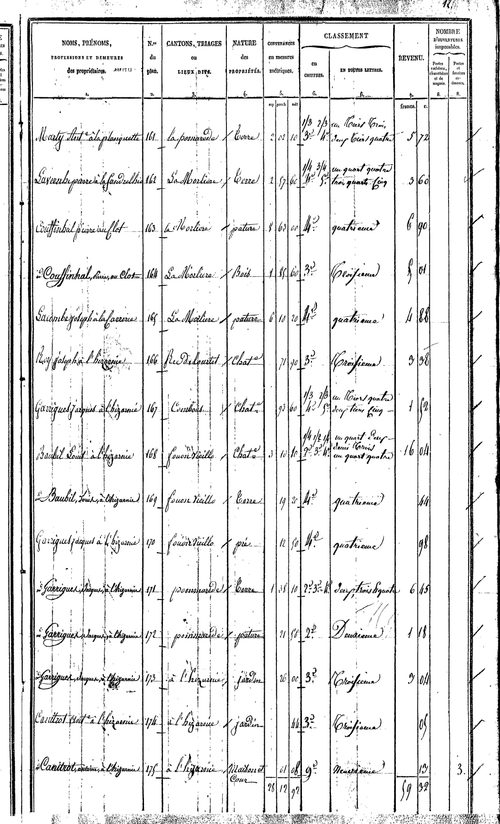 NOMS, PRÉNOMS,
PROFESSIONS ET DEMEURES
des propriétaires.
N.os
du
plan.
CANTONS, TRIAGES
ou
LIEUX DITS.
NATURE
des
PROPRIÉTÉS.
CONTENANCES
en mesures
métriques.
CLASSEMENT
en
CHIFFRES.
en
TOUTES LETTRES.
REVENU.
NOMBRE
D'OUVERTURES
imposables.
1. 2. 3. 4. 5. 6. 7. 8. 9.
francs. c.
Marty 161 la pomarede Terre 2 02 10 1/3 2/3 3e 4e un tiers trois deux tiers quatre 5 72
162 La Morliere Terre 2 57 60 1/4 3/4 4e 5e un quart quatre trois quarts cinq 3 60
Couffinhal pierre au Clot 163 La Morliere pature 8 63 00 4e quatrieme 6 90
Couffinhal, pierre, au Clot 164 La Morliere Bois 1 85 60 3e Troisieme 5 01
Lacombe joseph à la 165 La Morliere pature 6 10 20 4e quatrieme 4 88
Roy joseph à l'hizarnie 166 Chat.e 71 90 3e Troisieme 3 38
Garrigues jacques à l'hizarnie 167 Combals Chat.e 93 60 1/3 2/3 4e 5e un tiers quatre deux tiers cinq 1 52
Baubil Louis à l'hizarnie 168 fouon vieille Chat.e 3 10 10 1/4 1/2 1/4 2e 3e 4e un quart deux demi trois un quart quatre 16 04
Baubil, Louis, à l'hizarnie 169 fouon vieille Terre 19 4e quatrieme 44
Garrigues jacques à l'hizarnie 170 fouon vieille pré 12 50 4e quatrieme 98
Garrigues, jacques, à l'hizarnie 171 pommarede Terre 1 38 10 2e 3e 4e deux, trois et quatre 6 45
Garrigues, jacques, à l'hizarnie 172 pommarede pature 21 50 2e Deuxieme 1 18
Garrigues, jacques, à l'hizarnie 173 à l'hizarnie jardin 26 00 3e Troisieme 3 04
Canitrot ant.e à l'hizarnie 174 à l'hizarnie jardin 44 3e Troisieme 05
Canitrot, antoine, à l'hizarnie 175 à l'hizarnie Maison et Cour 01 08 9e Neuvieme 13 3.
28 12 92 59 32